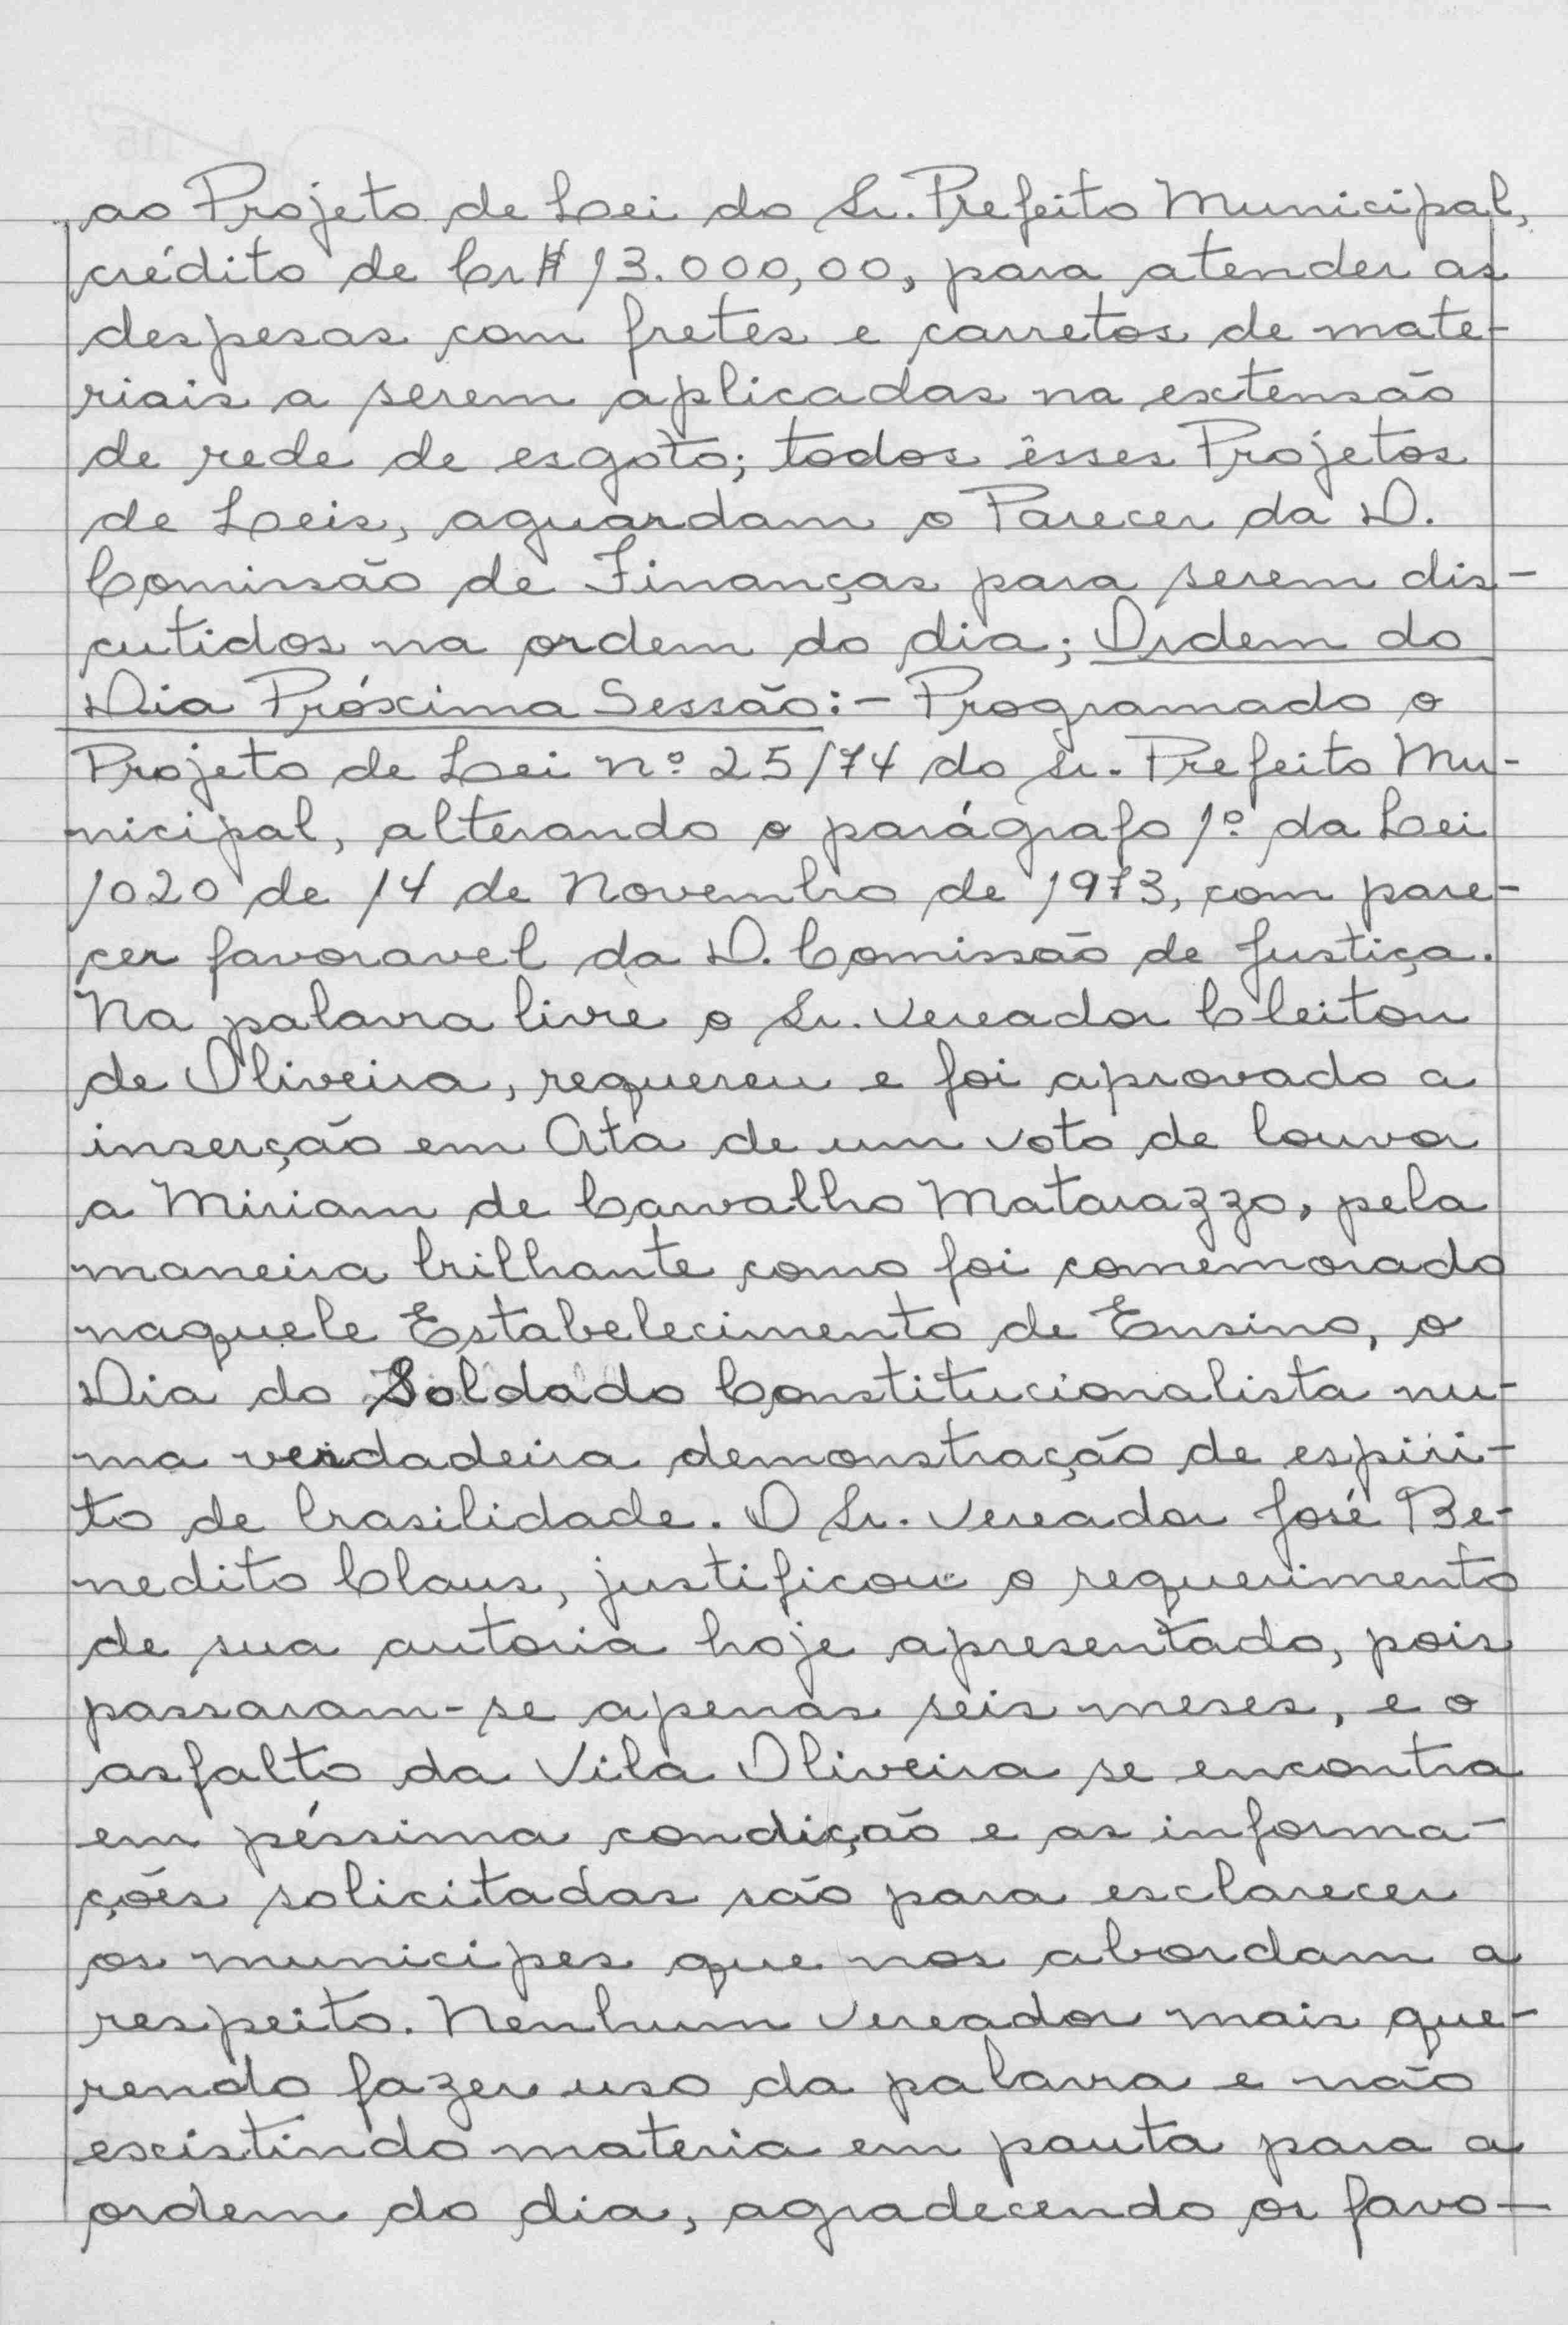 ao Projeto de Lei do Sr. Prefeito Municipal,
crédito de Cr$ 13.000,00, para atender as
despesas com fretes e carretos de mate-
riais a serem aplicadas na extensão
de rede de esgoto; todos êsses Projetos
de Leis, aguardam o Parecer da D.
Comissão de Finanças para serem dis-
cutidos na ordem do dia; Ordem do
Dia Próxima Sessão:- Programado o
Projeto de Lei nº 25/74 do Sr. Prefeito Mu-
nicipal, alterando o parágrafo 1º da Lei
1020 de 14 de Novembro de 1973, com pare-
cer favoravel da D. Comissão de Justiça.
Na palavra livre o Sr. Vereador Cleiton
de Oliveira, requereu e foi aprovado a
inserção em Ata de um voto de louvor
a Miriam de Carvalho Matarazzo, pela
maneira brilhante como foi comemorado
naquele Estabelecimento de Ensino, o
Dia do Soldado Constitucionalista nu-
ma verdadeira demonstração de espiri-
to de brasilidade. O Sr. Vereador José Be-
nedito Claus, justificou o requerimento
de sua autoria hoje apresentado, pois
passaram-se apenas seis meses, e o
asfalto da Vila Oliveira se encontra
em péssima condição e as informa-
ções solicitadas são para esclarecer
os municipes que nos abordam a
respeito. Nenhum Vereador mais que-
rendo fazer uso da palavra e não
existindo materia em pauta para a
ordem do dia, agradecendo os favo-